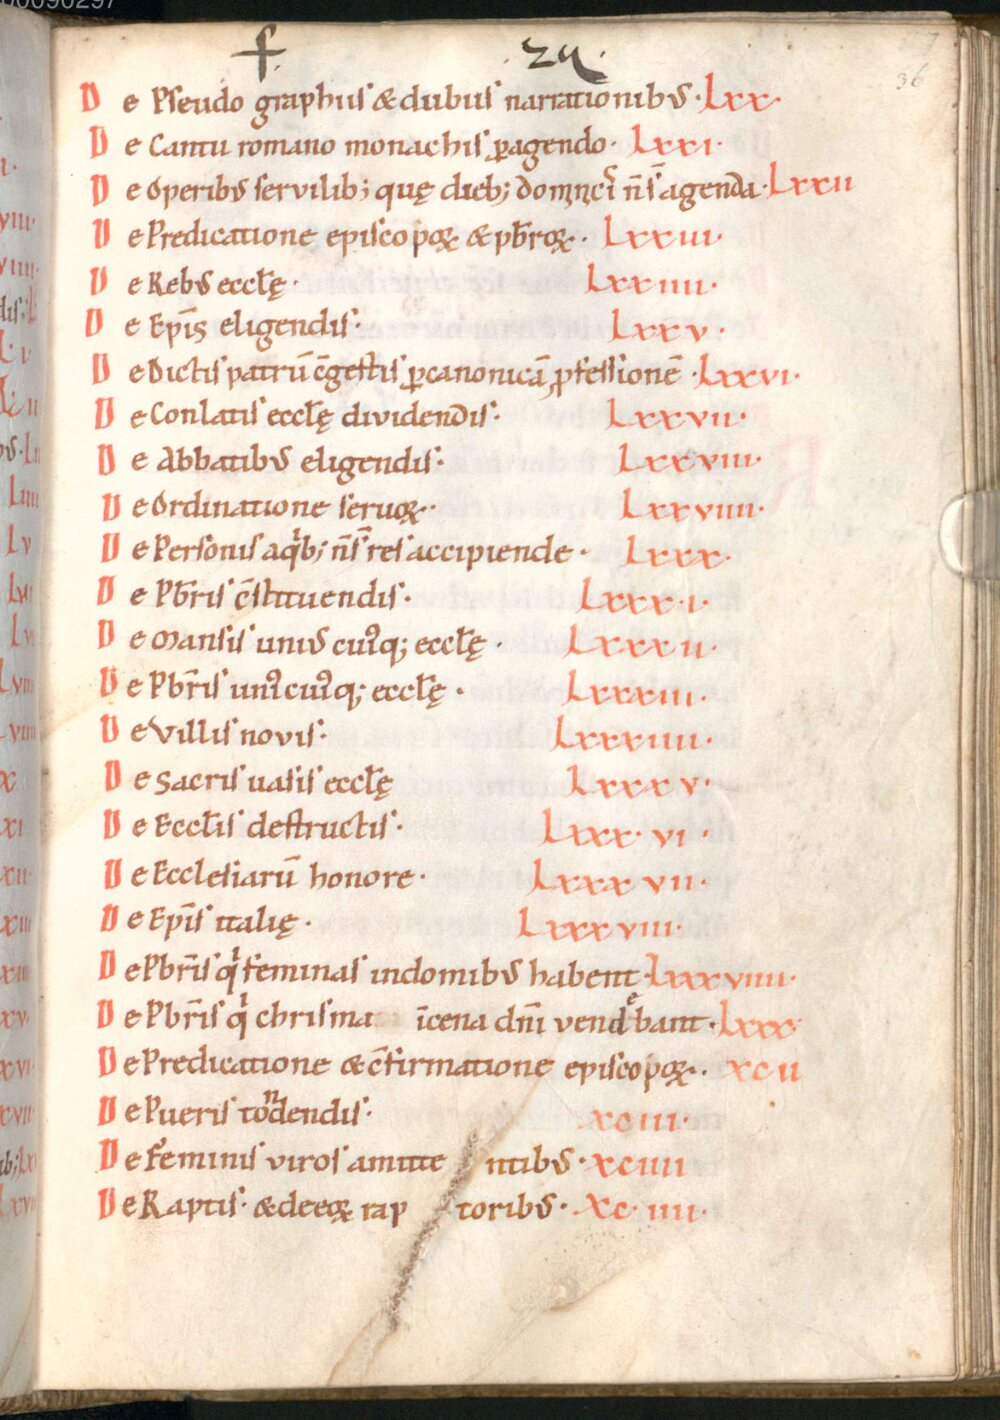 f. zu.
36
De Pseudo graphiis & dubiis narrationibꝰ · Lxx ·
De Cantu romano monachis ꝑagendo · Lxxi ·
De operibꝰ servilib; quę dieb; domīcī n̄s agenda · Lxxii
De Predicatione episcopoꝝ & pb̄roꝝ · Lxxiii ·
De Rebꝰ eccłę · Lxxiiii ·
De Epīs eligendis · Lxxv ·
De Dictis patrū c̄gestis ꝑcanonicā ꝓfessionē · Lxxvi ·
De Conlatis eccłę dividendis · Lxxvii ·
De Abbatibꝰ eligendis · Lxxviii ·
De Ordinatione seruoꝝ · Lxxviiii ·
De Personis aqͥb; n̄s res accipiende · Lxxx ·
De Pb̄ris c̄stituendis · Lxxx · i ·
De Mansis uniꝰ cuiꝰq; eccłę · Lxxxii ·
De Pbr̄is uniꝰcuiꝰq; eccłę · Lxxxiii ·
De Villis novis · Lxxxiiii ·
De Sacris uasis eccłę Lxxxv ·
De Eccłis destructis · Lxxx · vi ·
De Ecclesiarū honore · Lxxxvii ·
De Epīs italię · Lxxxviii ·
De Pbr̄is qͥ feminas indomibꝰ habent · Lxxxviiii ·
De Pbr̄is qͥ chrisma īcena dn̄i vendͤbant · Lxxx
De Predicatione & c̄firmatione episcopoꝝ · xcii
De Pueris tondendis · xciii ·
De Feminis viros amitte ntibꝰ · xciiii
De Raptis · & deeoꝝ rap toribꝰ · xc · iiii ·